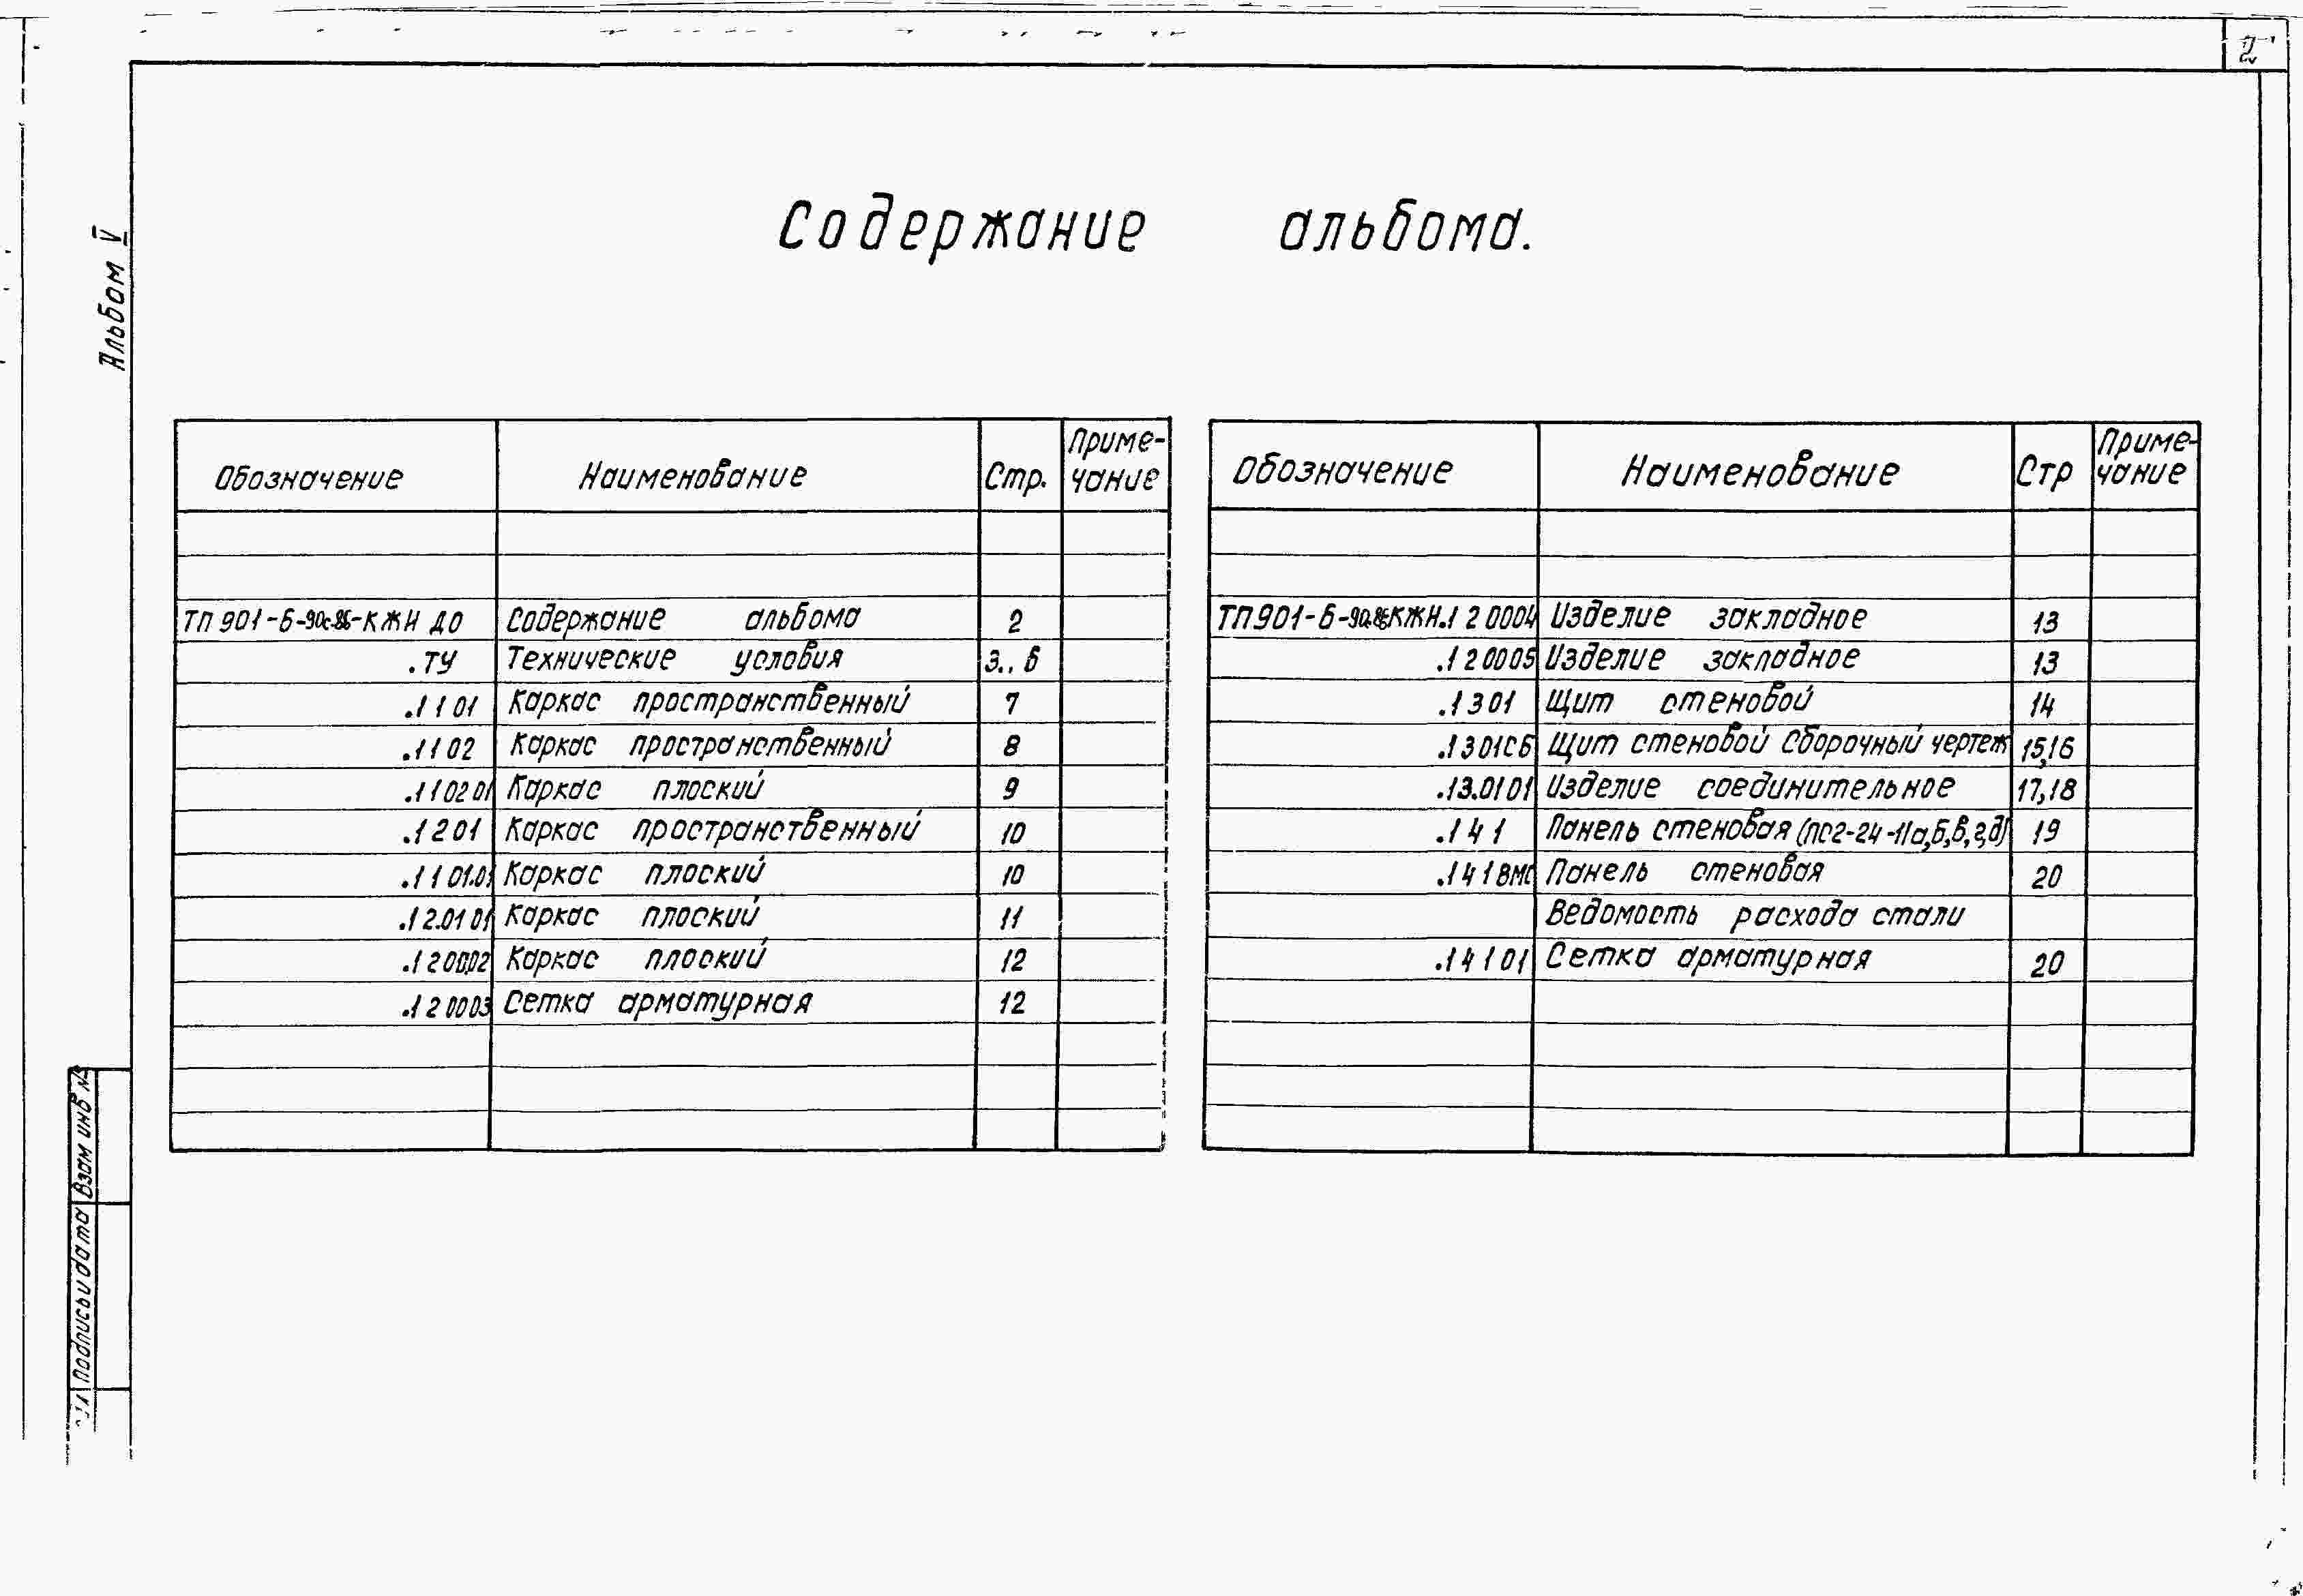 2
Альбом V
Содержание альбома.
Обозначение Наименование Стр. Приме-
чание
ТП 901-6-90с.86-КЖИ ДО Содержание альбома 2
.ТУ Технические условия 3..6
.1 1 01 Каркас пространственный 7
.1 1 02 Каркас пространственный 8
.1 1 02 01 Каркас плоский 9
.1 2 01 Каркас пространственный 10
.1 1 01.01 Каркас плоский 10
.1 2.01 01 Каркас плоский 11
.1 2 00.02 Каркас плоский 12
.1 2 00 03 Сетка арматурная 12
Обозначение Наименование Стр Приме-
чание
ТП 901-6-90с.86КЖИ.1 2 0004 Изделие закладное 13
.1 2 0005 Изделие закладное 13
.1 3 01 Щит стеновой 14
.1 3 01СБ Щит стеновой Сборочный чертеж 15,16
.13.01 01 Изделие соединительное 17,18
.1 4 1 Панель стеновая (ПС2-24-11а,б,в,г,д) 19
.1 4 1 ВМС Панель стеновая 20
Ведомость расхода стали
.1 4 1 01 Сетка арматурная 20
Взам инв №
Подпись и дата